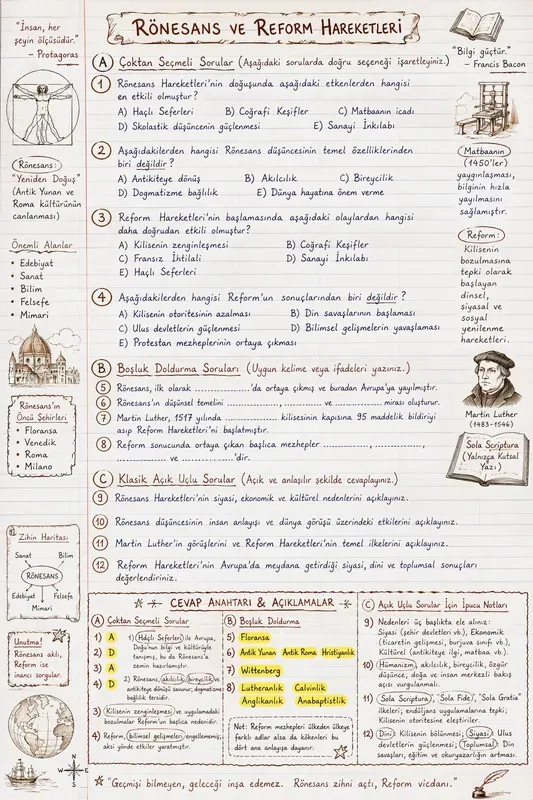 RÖNESANS VE REFORM HAREKETLERİ
"İnsan, her
şeyin ölçüsüdür."
– Protagoras
Rönesans:
"Yeniden Doğuş"
(Antik Yunan ve
Roma kültürünün
canlanması)
Önemli Alanlar
• Edebiyat
• Sanat
• Bilim
• Felsefe
• Mimari
Rönesans'ın
Öncü Şehirleri
• Floransa
• Venedik
• Roma
• Milano
Zihin Haritası
Sanat Bilim
RÖNESANS
Edebiyat Felsefe
Mimari
Unutma!
Rönesans aklı,
Reform ise
inancı sorgular.
N
W E
S
A Çoktan Seçmeli Sorular (Aşağıdaki sorularda doğru seçeneği işaretleyiniz.)
1 Rönesans Hareketleri'nin doğuşunda aşağıdaki etkenlerden hangisi
en etkili olmuştur?
A) Haçlı Seferleri B) Coğrafi Keşifler C) Matbaanın icadı
D) Skolastik düşüncenin güçlenmesi E) Sanayi İnkılabı
2 Aşağıdakilerden hangisi Rönesans düşüncesinin temel özelliklerinden
biri değildir?
A) Antikiteye dönüş B) Akılcılık C) Bireycilik
D) Dogmatizme bağlılık E) Dünya hayatına önem verme
3 Reform Hareketleri'nin başlamasında aşağıdaki olaylardan hangisi
daha doğrudan etkili olmuştur?
A) Kilisenin zenginleşmesi B) Coğrafi Keşifler
C) Fransız İhtilali D) Sanayi İnkılabı
E) Haçlı Seferleri
4 Aşağıdakilerden hangisi Reform'un sonuçlarından biri değildir?
A) Kilisenin otoritesinin azalması B) Din savaşlarının başlaması
C) Ulus devletlerin güçlenmesi D) Bilimsel gelişmelerin yavaşlaması
E) Protestan mezheplerinin ortaya çıkması
B Boşluk Doldurma Soruları (Uygun kelime veya ifadeleri yazınız.)
5 Rönesans, ilk olarak ................'da ortaya çıkmış ve buradan Avrupa'ya yayılmıştır.
6 Rönesans'ın düşünsel temelini ................ ve ................ mirası oluşturur.
7 Martin Luther, 1517 yılında ................ kilisesinin kapısına 95 maddelik bildiriyi
asıp Reform Hareketleri'ni başlatmıştır.
8 Reform sonucunda ortaya çıkan başlıca mezhepler ................, ................,
................ ve ................'dir.
C Klasik Açık Uçlu Sorular (Açık ve anlaşılır şekilde cevaplayınız.)
9 Rönesans Hareketleri'nin siyasi, ekonomik ve kültürel nedenlerini açıklayınız.
10 Rönesans düşüncesinin insan anlayışı ve dünya görüşü üzerindeki etkilerini açıklayınız.
11 Martin Luther'in görüşlerini ve Reform Hareketleri'nin temel ilkelerini açıklayınız.
12 Reform Hareketleri'nin Avrupa'da meydana getirdiği siyasi, dini ve toplumsal sonuçları
değerlendiriniz.
"Bilgi güçtür."
– Francis Bacon
Matbaanın
(1450'ler)
yaygınlaşması,
bilginin hızla
yayılmasını
sağlamıştır.
Reform:
Kilisenin
bozulmasına
tepki olarak
başlayan
dinsel,
siyasal ve
sosyal
yenilenme
hareketleri.
Martin Luther
(1483-1546)
Sola Scriptura
(Yalnızca Kutsal
Yazı)
CEVAP ANAHTARI & AÇIKLAMALAR
A Çoktan Seçmeli Sorular
1) A
2) D
3) A
4) D
1) Haçlı Seferleri ile Avrupa,
Doğu'nun bilgi ve kültürüyle
tanışmış, bu da Rönesans'a
zemin hazırlamıştır.
2) Rönesans, akılcılık, bireycilik ve
antikiteye dönüşü savunur; dogmatizme
bağlılık tersidir.
3) Kilisenin zenginleşmesi ve uygulamadaki
bozulmalar Reform'un başlıca nedenidir.
4) Reform, bilimsel gelişmeleri engellememiş;
aksi yönde etkiler yaratmıştır.
B) Boşluk Doldurma
5) Floransa
6) Antik Yunan Antik Roma Hristiyanlık
7) Wittenberg
8) Lutheranlık Calvinlik
Anglikanlık Anabaptistlik
Not: Reform mezhepleri ülkeden ülkeye
farklı adlar alsa da kökenleri bu
dört ana anlayışa dayanır.
C Açık Uçlu Sorular İçin İpucu Notları
9) Nedenleri üç başlıkta ele alınız:
Siyasi (şehir devletleri vb.), Ekonomik
(ticaretin gelişmesi, burjuva sınıfı vb.),
Kültürel (antikiteye ilgi, matbaa vb.).
10) Hümanizm, akılcılık, bireycilik, özgür
düşünce, doğa ve insan merkezli bakış
açısı vurgulanmalı.
11) "Sola Scriptura", "Sola Fide", "Sola Gratia"
ilkeleri; endüljans uygulamalarına tepki;
Kilisenin otoritesine eleştiriler.
12) Dini: Kilisenin bölünmesi, Siyasi: Ulus
devletlerin güçlenmesi; Toplumsal: Din
savaşları, eğitim ve okuryazarlığın artması.
"Geçmişi bilmeyen, geleceği inşa edemez. Rönesans zihni açtı, Reform vicdanı."